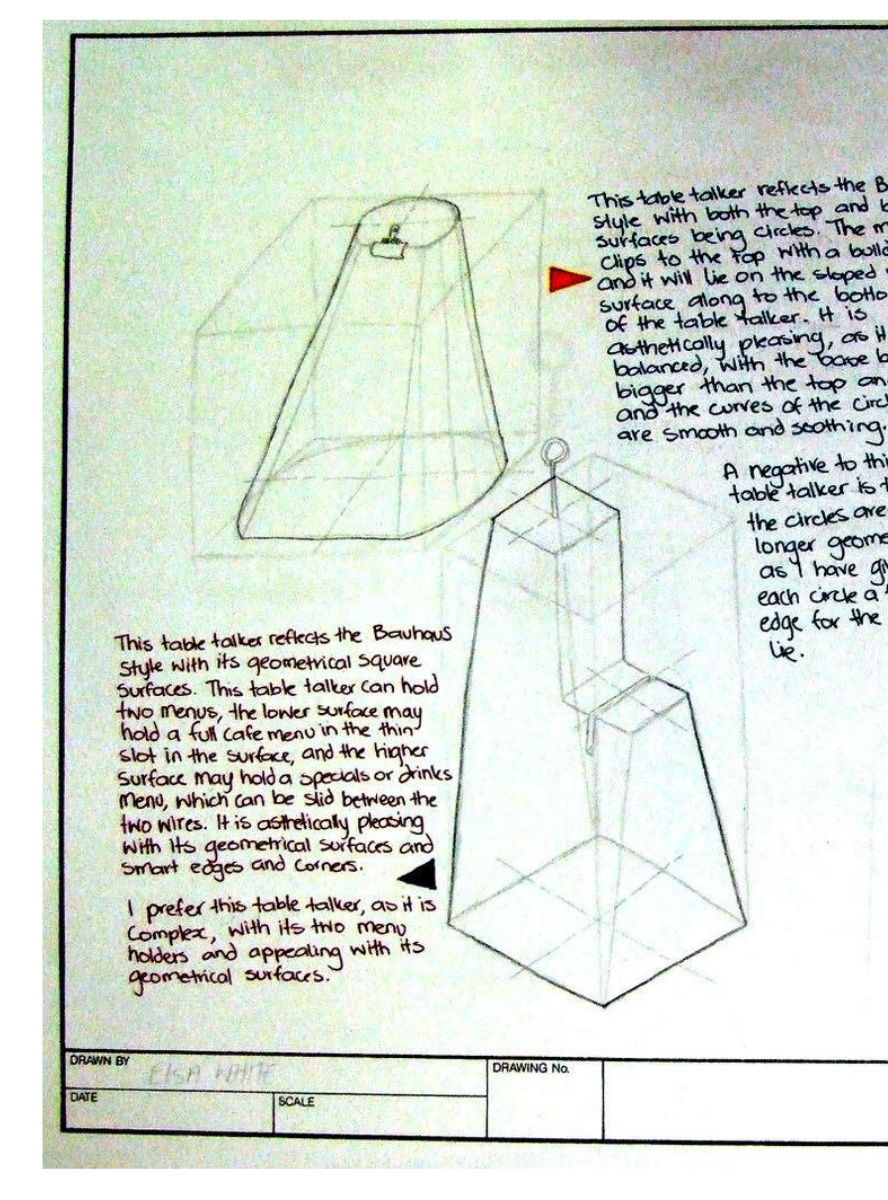 This table talker reflects the B
style with both the top and b
surfaces being circles. The m
clips to the top with a bulld
and it will lie on the sloped
surface along to the botto
of the table talker. It is
asthetically pleasing, as it
balanced, with the base b
bigger than the top an
and the curves of the circl
are smooth and soothing.
A negative to thi
table talker is t
the circles are
longer geome
as I have gi
each circle a
edge for the
lie.
This table talker reflects the Bauhaus
style with its geometrical square
surfaces. This table talker can hold
two menus, the lower surface may
hold a full cafe menu in the thin
slot in the surface, and the higher
surface may hold a specials or drinks
menu, which can be slid between the
two wires. It is asthetically pleasing
with its geometrical surfaces and
smart edges and corners.
I prefer this table talker, as it is
complex, with its two menu
holders and appealing with its
geometrical surfaces.
DRAWN BY
ElSA WHITE
DRAWING No.
DATE
SCALE